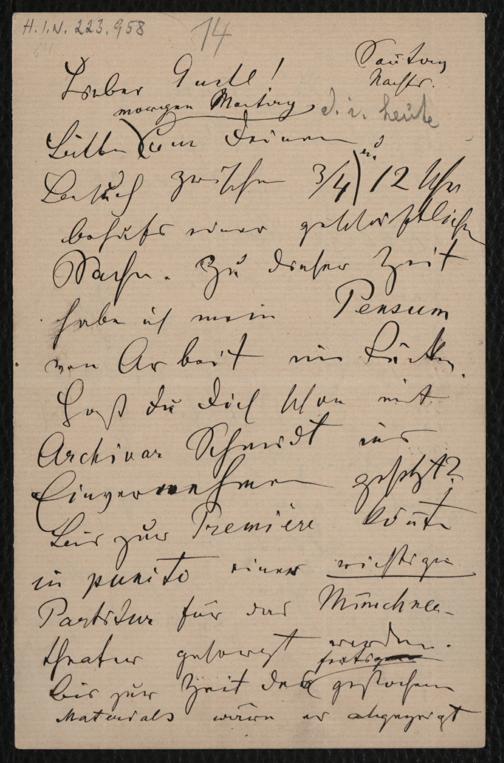 H.I.N. 223.958
14
Sontag
Nachts.
Lieber Gustl!
morgen Montag d. i. heute
Bitte um Deinen
Besuch zwischen 3/4 und 12 Uhr
behufs einer geschäftlichen
Sache. Zu dieser Zeit
habe ich mein Pensum
von Arbeit im Rücken.
Hast du dich schon mit
Archivar Schmidt ins
Einvernehmen gesetzt?
Bis zur Première könnte
in punkto einer richtigen
Partitur für das Münchner
theater gesorgt werden.
Bis zur Zeit des gestochenen
Materials wäre er